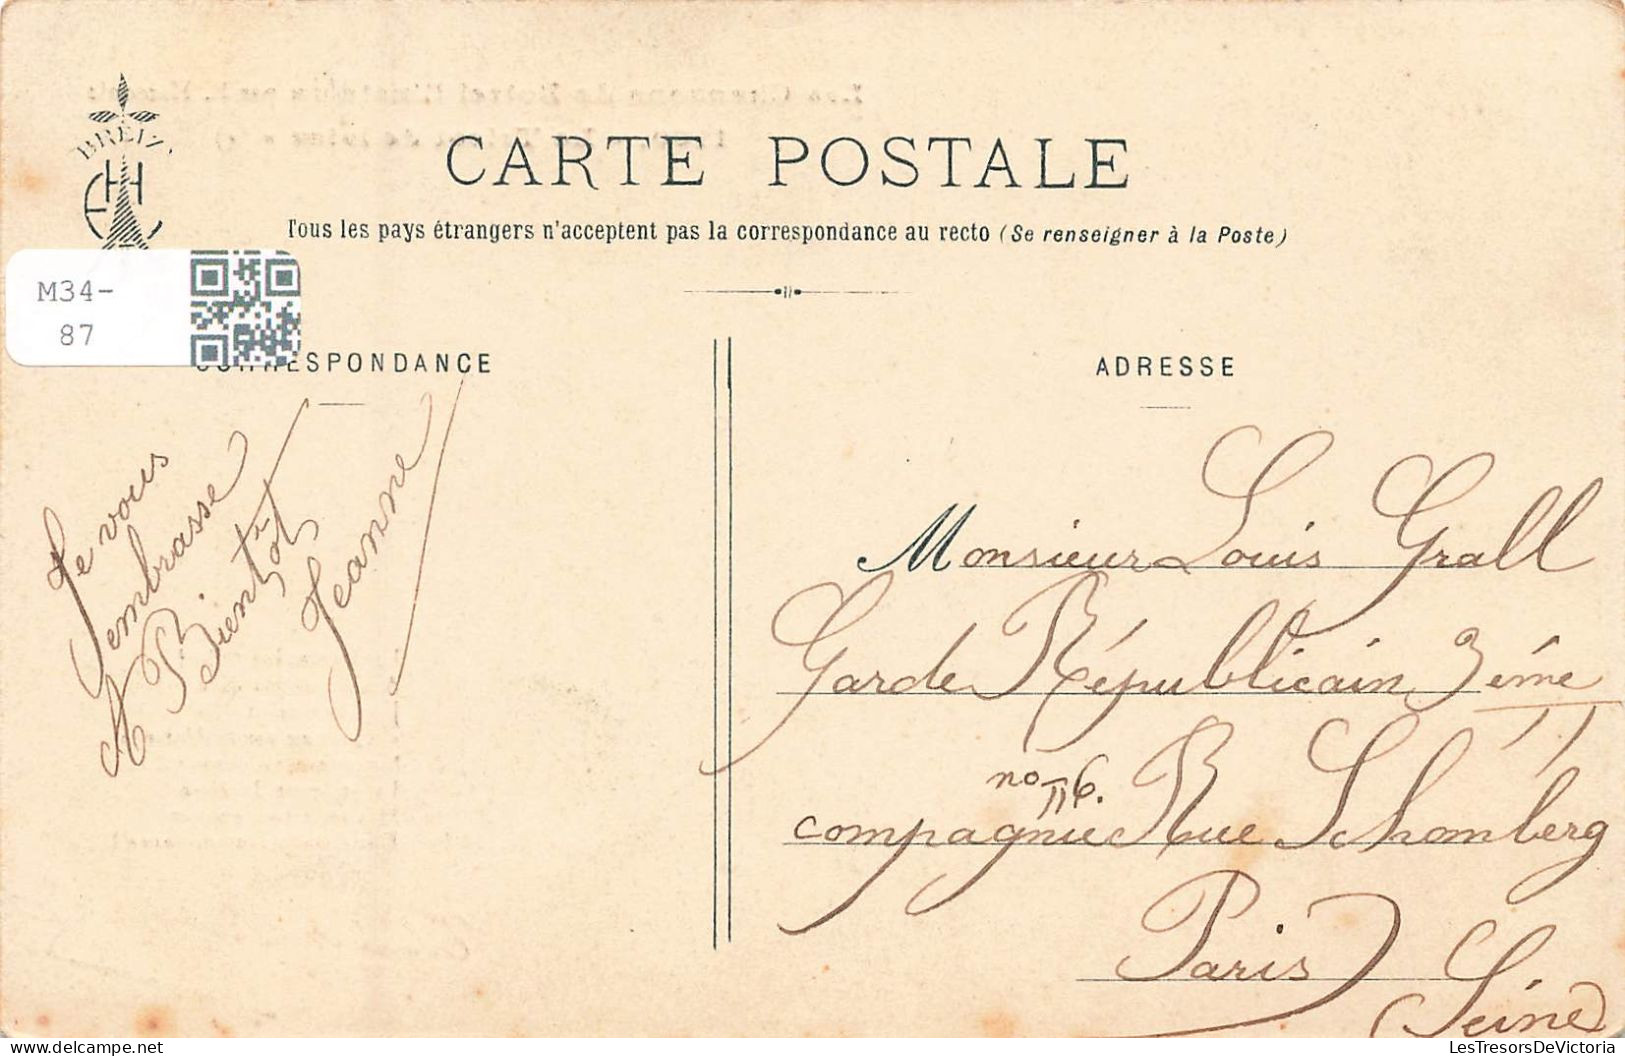 BREIZ
CARTE POSTALE
Tous les pays étrangers n'acceptent pas la correspondance au recto (Se renseigner à la Poste)
M34-
87
CORRESPONDANCE
Je vous
embrasse
A Bientôt
Jeanne
ADRESSE
Monsieur Louis Grall
Garde Républicain 3ème
no 116.
compagnie Rue Schomberg
Paris
(Seine)
LesTresorsDeVictoria